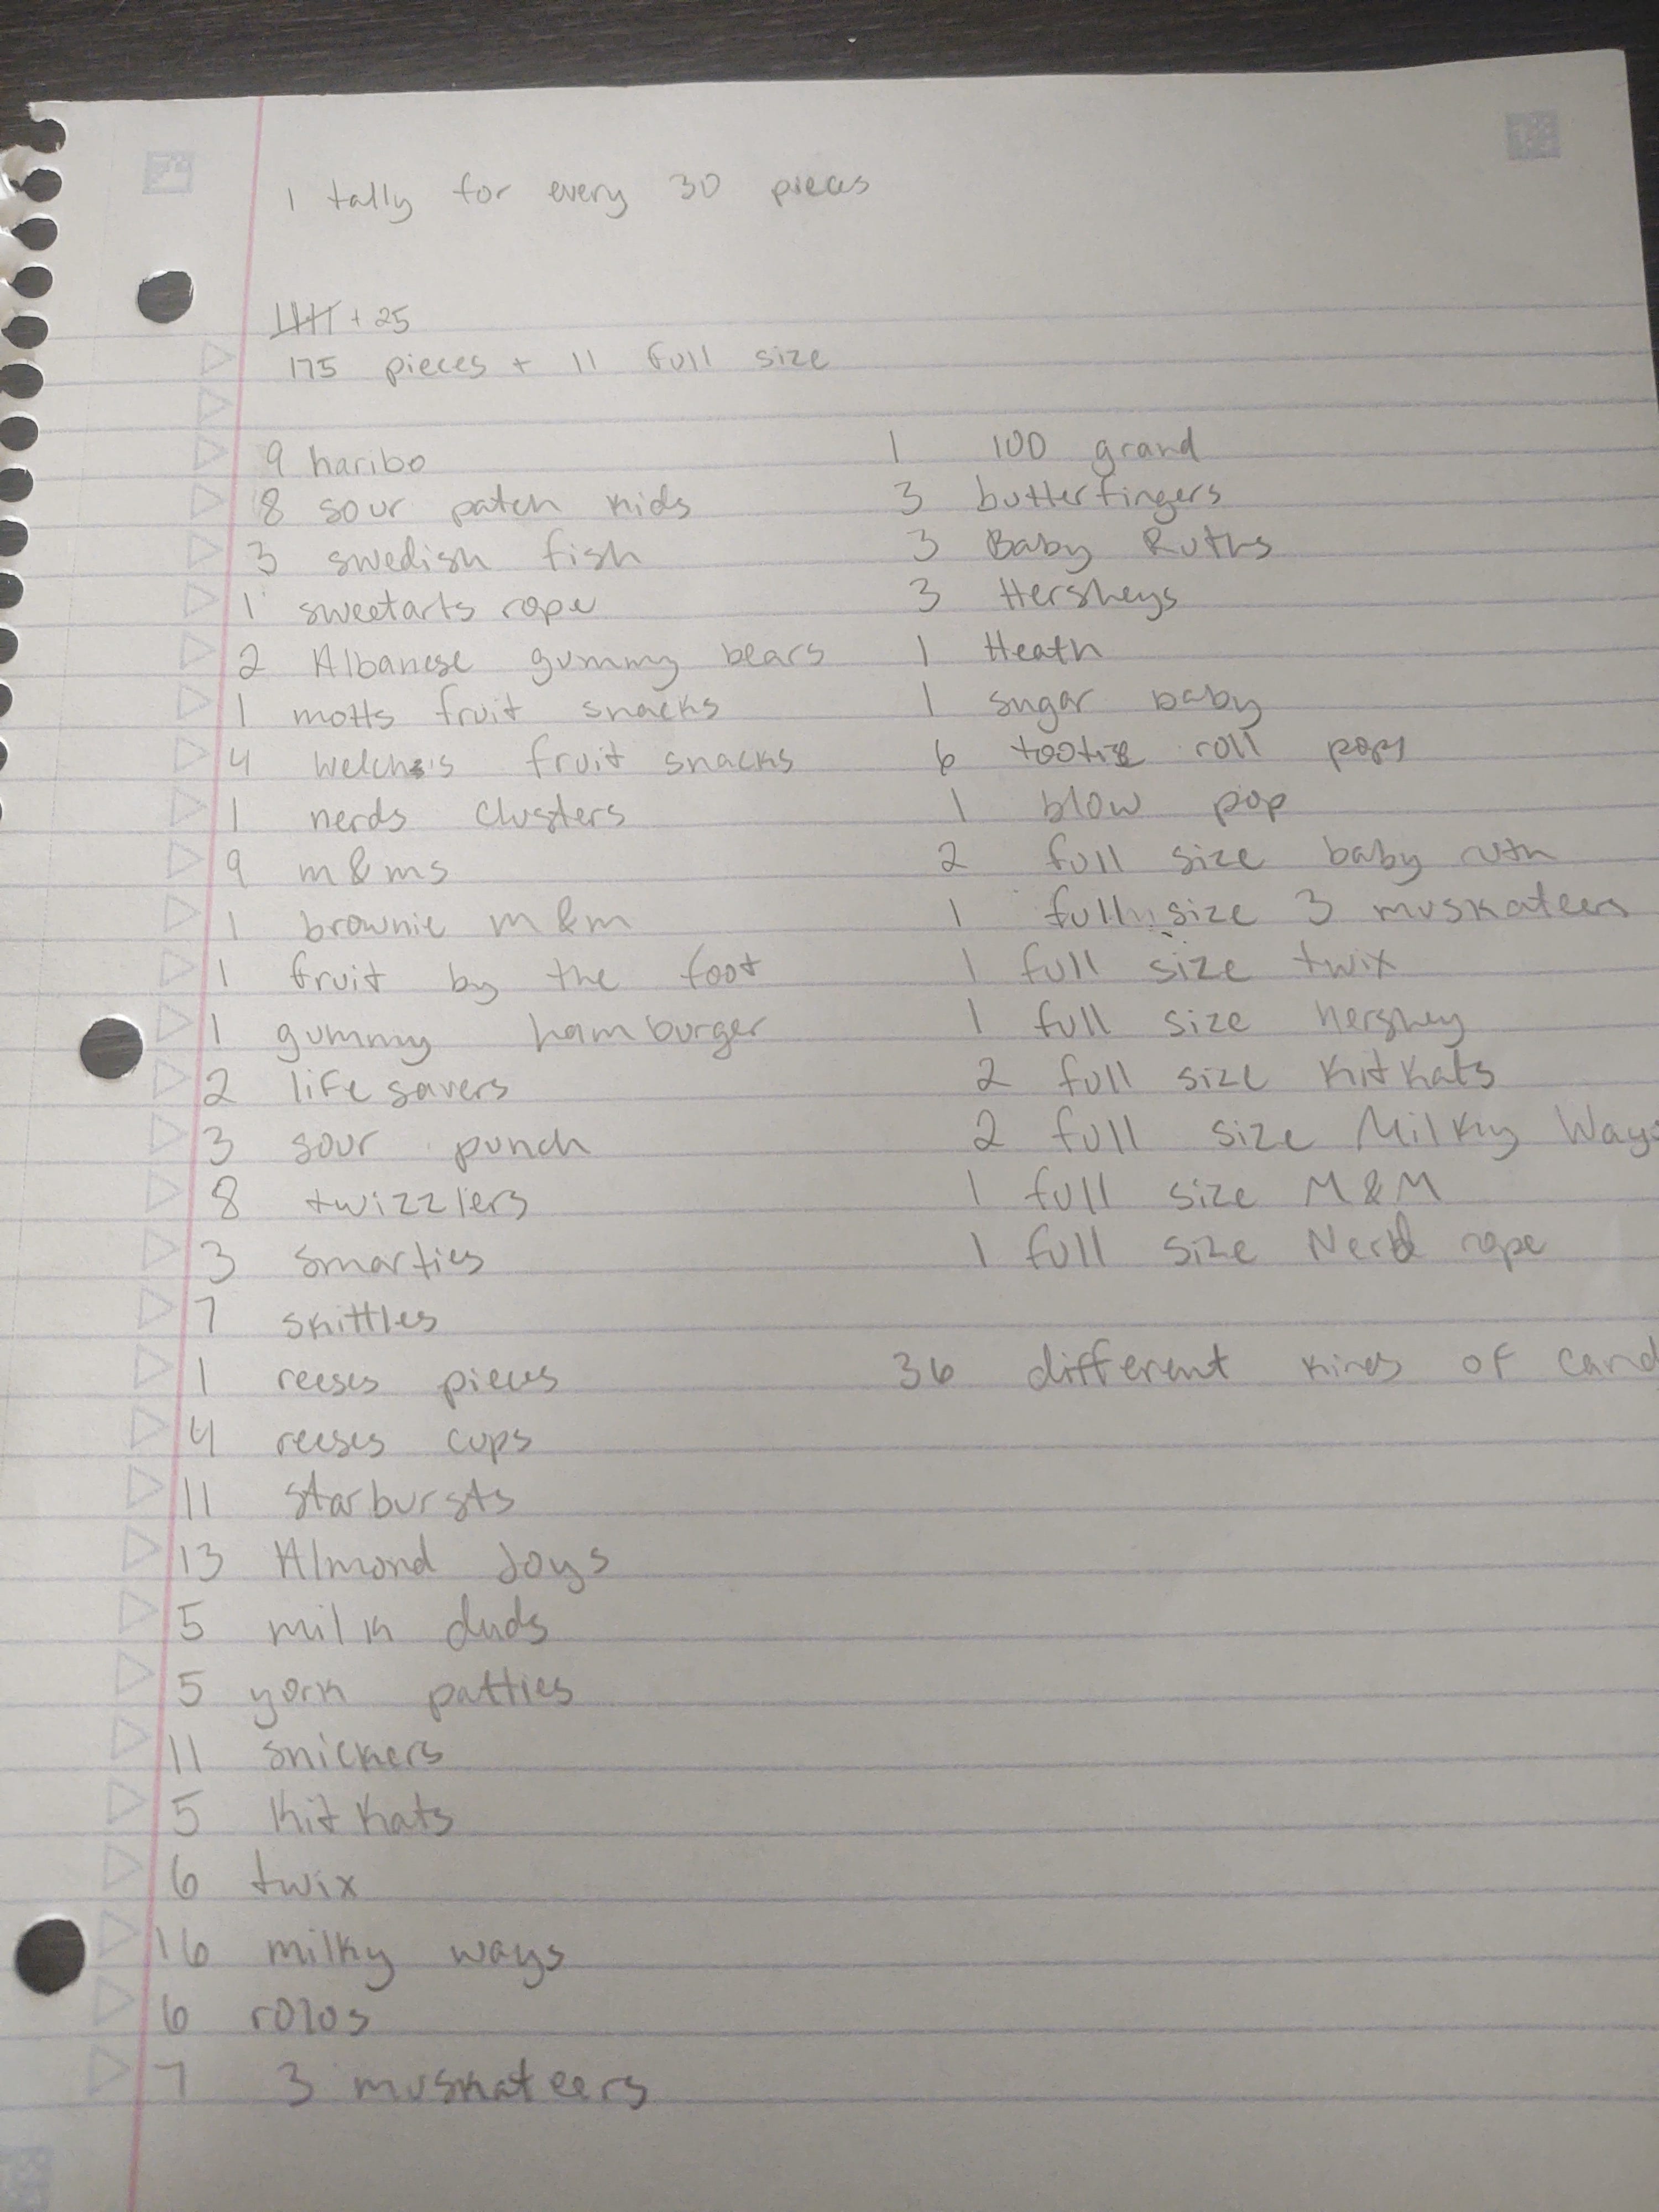 1 tally for every 30 pieces
+ 25
175 pieces + 11 full size
9 haribo
8 sour patch kids
3 swedish fish
1 sweetarts rope
2 Albanese gummy bears
1 motts fruit snacks
4 welch's fruit snacks
1 nerds clusters
9 m&ms
1 brownie m&m
1 fruit by the foot
1 gummy hamburger
2 life savers
3 sour punch
8 twizzlers
3 smarties
7 skittles
1 reeses pieces
4 reeses cups
11 starbursts
13 Almond Joys
5 milk duds
5 york patties
11 snickers
5 Kit Kats
6 twix
16 milky ways
6 rolos
7 3 muskateers
1 100 grand
3 butterfingers
3 Baby Ruths
3 Hersheys
1 Heath
1 sugar baby
6 tootie roll pops
1 blow pop
2 full size baby ruth
1 full size 3 muskateers
1 full size twix
1 full size hershey
2 full size Kit Kats
2 full size Milky Ways
1 full size M&M
1 full size Nerd rope
36 different kinds of cand